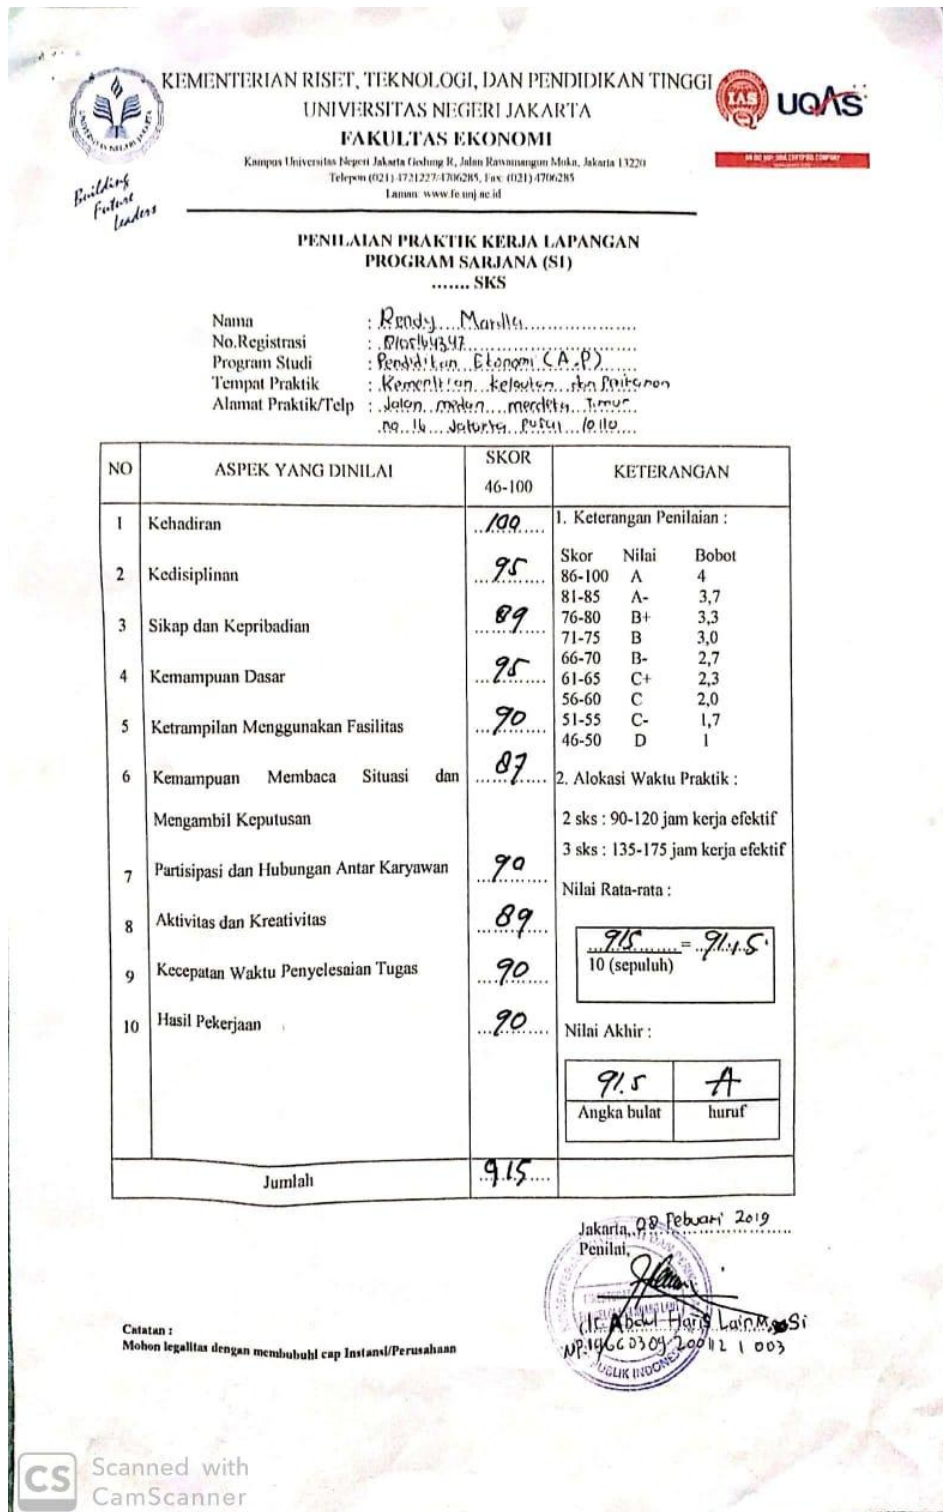 KEMENTERIAN RISET, TEKNOLOGI, DAN PENDIDIKAN TINGGI
UNIVERSITAS NEGERI JAKARTA
FAKULTAS EKONOMI
Kampus Universitas Negeri Jakarta Gedung R, Jalan Rawamangun Muka, Jakarta 13220
Telepon (021) 4721227/4706285, Fax: (021) 4706285
Laman: www.fe.unj.ac.id
IAS UQAS
Building
Future
Leaders
PENILAIAN PRAKTIK KERJA LAPANGAN
PROGRAM SARJANA (S1)
....... SKS
Nama : Rendy
No.Registrasi :
Program Studi : Pendidikan Ekonomi (A.P)
Tempat Praktik : kelautan dan
Alamat Praktik/Telp : Jalan medan merdeka Timur
no 16 Jakarta Pusat 10110
NO ASPEK YANG DINILAI SKOR 46-100 KETERANGAN
1 Kehadiran 100
2 Kedisiplinan 95
3 Sikap dan Kepribadian 89
4 Kemampuan Dasar 95
5 Ketrampilan Menggunakan Fasilitas 90
6 Kemampuan Membaca Situasi dan 87
Mengambil Keputusan
7 Partisipasi dan Hubungan Antar Karyawan 90
8 Aktivitas dan Kreativitas 89
9 Kecepatan Waktu Penyelesaian Tugas 90
10 Hasil Pekerjaan 90
Jumlah 915
1. Keterangan Penilaian :
Skor Nilai Bobot
86-100 A 4
81-85 A- 3,7
76-80 B+ 3,3
71-75 B 3,0
66-70 B- 2,7
61-65 C+ 2,3
56-60 C 2,0
51-55 C- 1,7
46-50 D 1
2. Alokasi Waktu Praktik :
2 sks : 90-120 jam kerja efektif
3 sks : 135-175 jam kerja efektif
Nilai Rata-rata :
915 = 91,5
10 (sepuluh)
Nilai Akhir :
91.5 A
Angka bulat huruf
Jakarta, 08 Pebuari 2019
Penilai,
Abdul Haris
NIP.19660309 200112 1 003
Catatan :
Mohon legalitas dengan membubuhi cap Instansi/Perusahaan
CS Scanned with
CamScanner